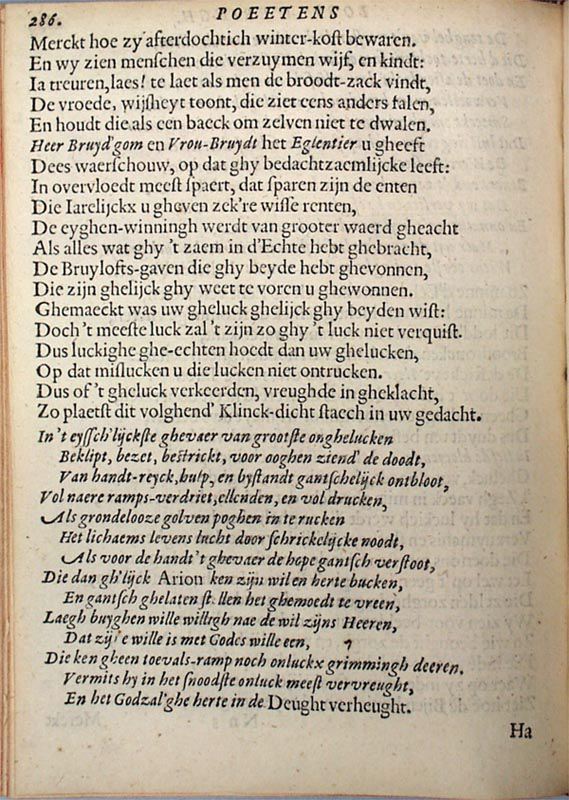 286. POEETENS
Merckt hoe zy afterdochtich winter-kost bewaren.
En wy zien menschen die verzuymen wijf, en kindt:
Ia treuren, laes! te laet als men de broodt-zack vindt,
De vroede, wijsheyt toont, die ziet eens anders falen,
En houdt die als een baeck om zelven niet te dwalen.
Heer Bruyd'gom en Vrou-Bruydt het Eglentier u gheeft
Dees waerschouw, op dat ghy bedachtzaemlijcke leeft:
In overvloedt meest spaert, dat sparen zijn de enten
Die Iarelijckx u gheven zek're wisse renten,
De eyghen-winningh werdt van grooter waerd gheacht
Als alles wat ghy 't zaem in d'Echte hebt ghebracht,
De Bruylofts-gaven die ghy beyde hebt ghevonnen,
Die zijn ghelijck ghy weet te voren u ghewonnen.
Ghemaeckt was uw gheluck ghelijck ghy beyden wist:
Doch 't meeste luck zal 't zijn zo ghy 't luck niet verquist.
Dus luckighe ghe-echten hoedt dan uw ghelucken,
Op dat mislucken u die lucken niet ontrucken.
Dus of 't gheluck verkeerden, vreughde in gheklacht,
Zo plaetst dit volghend' Klinck-dicht staech in uw gedacht.
In 't eyssch'lijckste ghevaer van grootste onghelucken
Beklipt, bezet, bestrickt, voor ooghen ziend' de doodt,
Van handt-reyck, hulp, en bystandt gantschelijck ontbloot,
Vol naere ramps-verdriet, ellenden, en vol drucken,
Als grondelooze golven poghen in te rucken
Het lichaems levens lucht door schrickelijcke noodt,
Als voor de handt 't ghevaer de hope gantsch verstoot,
Die dan gh'lijck Arion ken zijn wil en herte bucken,
En gantsch ghelaten st llen het ghemoedt te vreen,
Laegh buyghen wille willigh nae de wil zijns Heeren,
Dat zij e wille is met Godes wille een,
Die ken gheen toevals-ramp noch onluckx grimmingh deeren.
Vermits hy in het snoodste onluck meest vervreught,
En het Godzal'ghe herte in de Deught verheught.
Ha